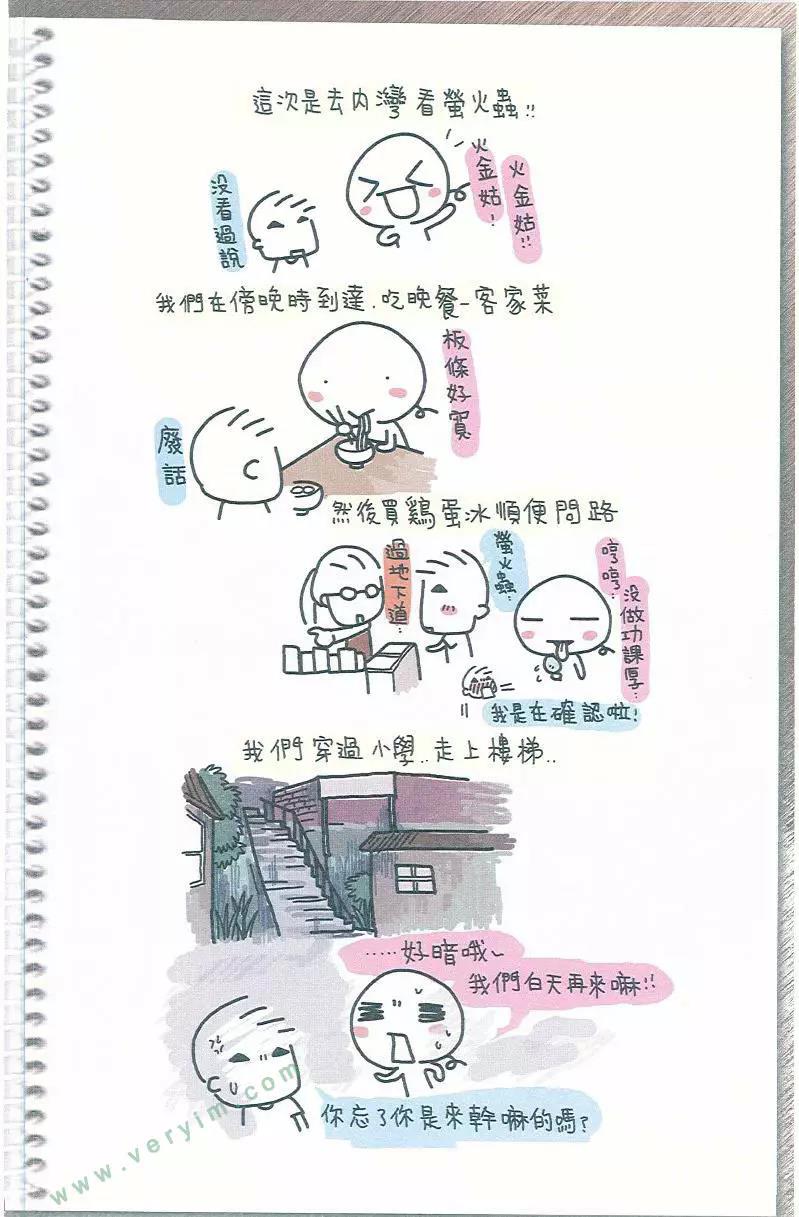 這次是去內灣看螢火蟲!!
火金姑!
火金姑!!
沒看過說
我們在傍晚時到達.吃晚餐-客家菜
板條好賀
廢話
然後買鷄蛋冰順便問路
過地下道…
螢火蟲…
哼哼…
沒做功課厚…
我是在確認啦!
我們穿過小學..走上樓梯..
……好暗哦~
我們白天再來嘛!!
你忘了你是來幹嘛的嗎?
www.veryim.com